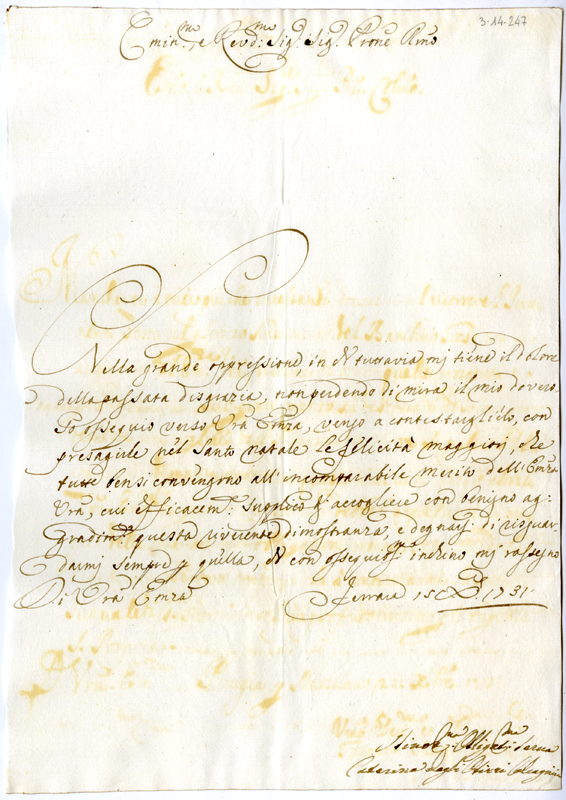 3-14-247
Emin.mo, e Revd:mo Sig.r Sig.r Prone
Nella grande oppressione, in che tuttavia mj tiene il dolore
della passata disgrazia, non perdendo di mira il mio dovero
so ossequio verso Vra Emza, vengo a contestarglielo, con
presagirle nel Santo natale le felicità maggiorj, che
tutte bensi convengono all'incomparabile merito dell'Emza
Vra, cui efficacem.e supplico d'accogliere con benigno ag-
gradim.to questa riverente dimostranza, e degnarsi di risguar-
darmj sempre quella, che con ossequios.mo inchino mj rassegno
Di Vra Emza Ferrara 15 Xbre 1731
Serva
Caterina degli